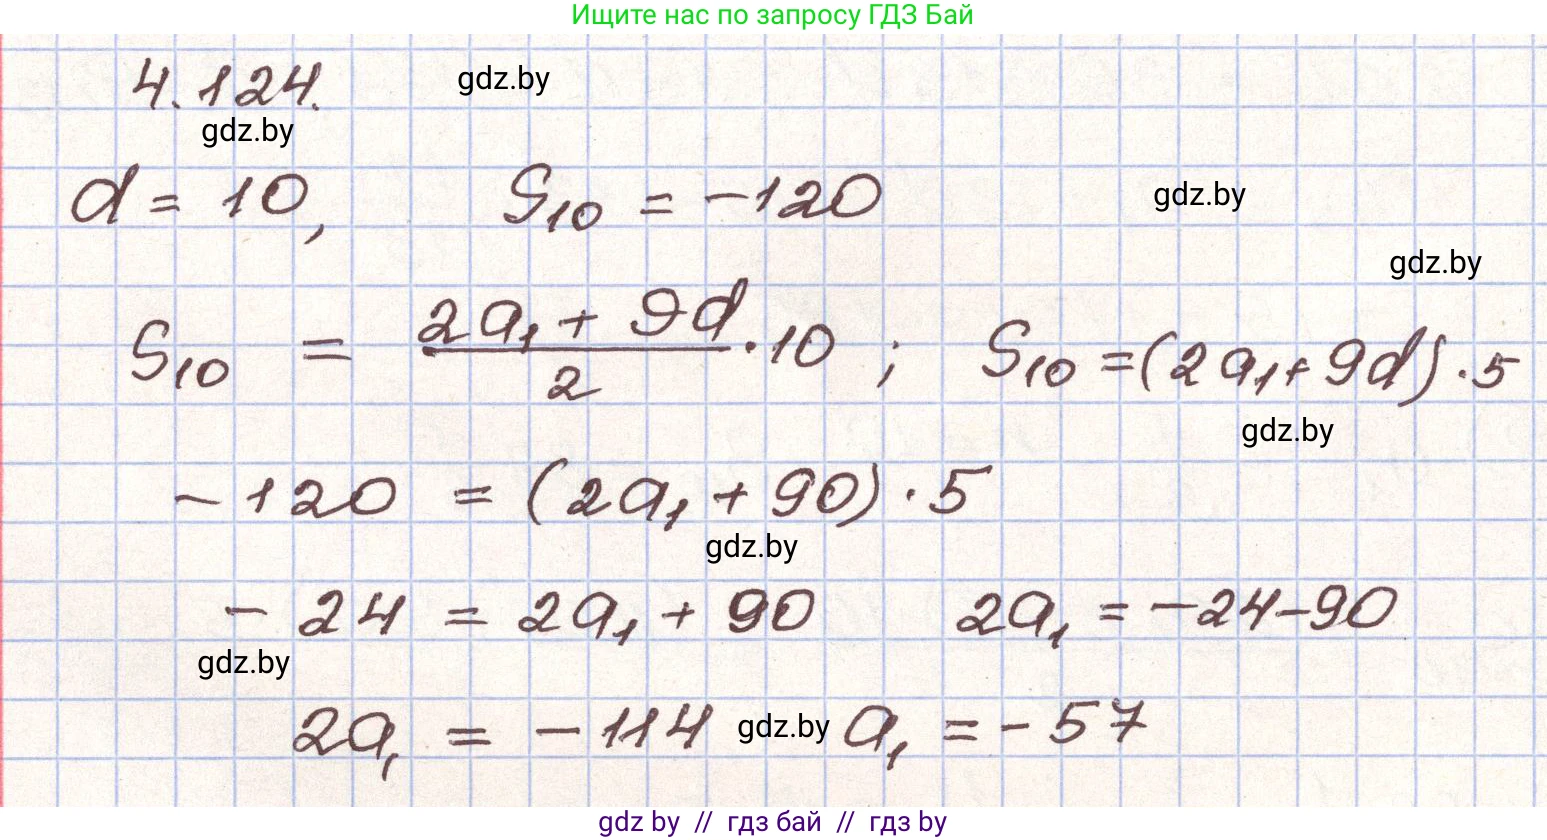 Ищите нас по запросу ГДЗ Бай
4.124. gdz.by
gdz.by
d = 10, S₁₀ = -120 gdz.by
gdz.by
S₁₀ = (2a₁ + 9d)/2 · 10 ; S₁₀ = (2a₁ + 9d) · 5
gdz.by
-120 = (2a₁ + 90) · 5
gdz.by
-24 = 2a₁ + 90 2a₁ = -24-90
gdz.by
2a₁ = -114 gdz.by a₁ = -57
gdz by // гдз бай // гдз by